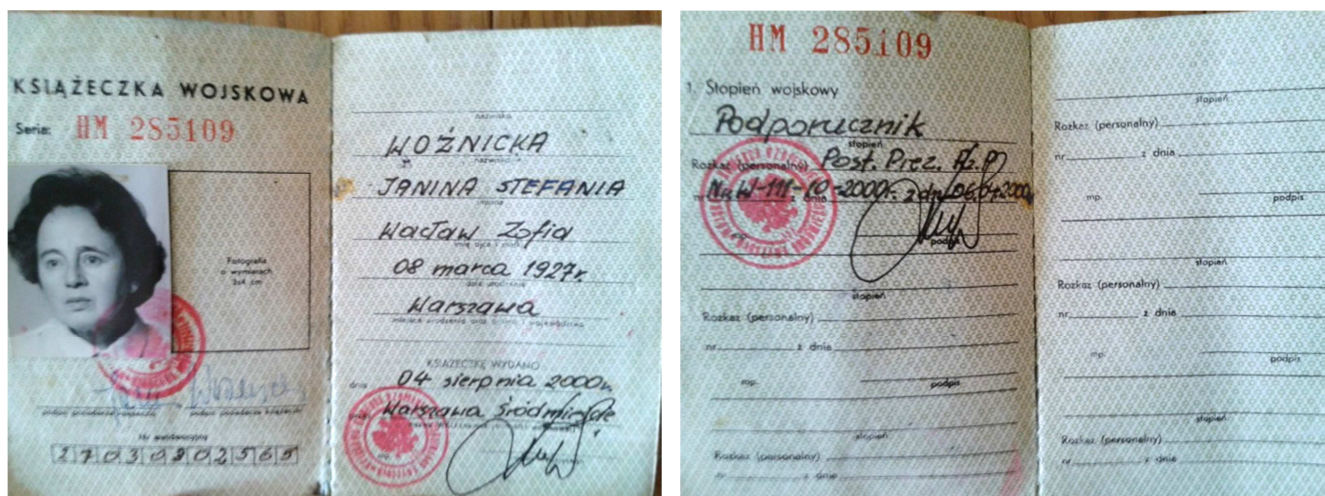 KSIĄŻECZKA WOJSKOWA
Seria: HM 285109
Fotografia
o wymiarach
3x4 cm
podpis posiadacza książeczki
Nr ewidencyjny
27030802565
nazwisko
WOŹNICKA
nazwisko
JANINA STEFANIA
imiona
Wacław Zofia
imię ojca i matki
08 marca 1927r.
data urodzenia
Warszawa
miejsce urodzenia
KSIĄŻECZKĘ WYDANO
dnia 04 sierpnia 2000r.
Warszawa Śródmieście
HM 285109
1. Stopień wojskowy
Podporucznik
stopień
Rozkaz (personalny) Post. Prez. Rz.P.
nr Nr W-111-10-2000r. z dn. 06.04.2000r.
z dnia
podpis
stopień
Rozkaz (personalny)
nr z dnia
mp. podpis
stopień
Rozkaz (personalny)
nr z dnia
stopień
Rozkaz (personalny)
nr z dnia
mp. podpis
stopień
Rozkaz (personalny)
nr z dnia
mp. podpis
stopień
Rozkaz (personalny)
nr z dnia